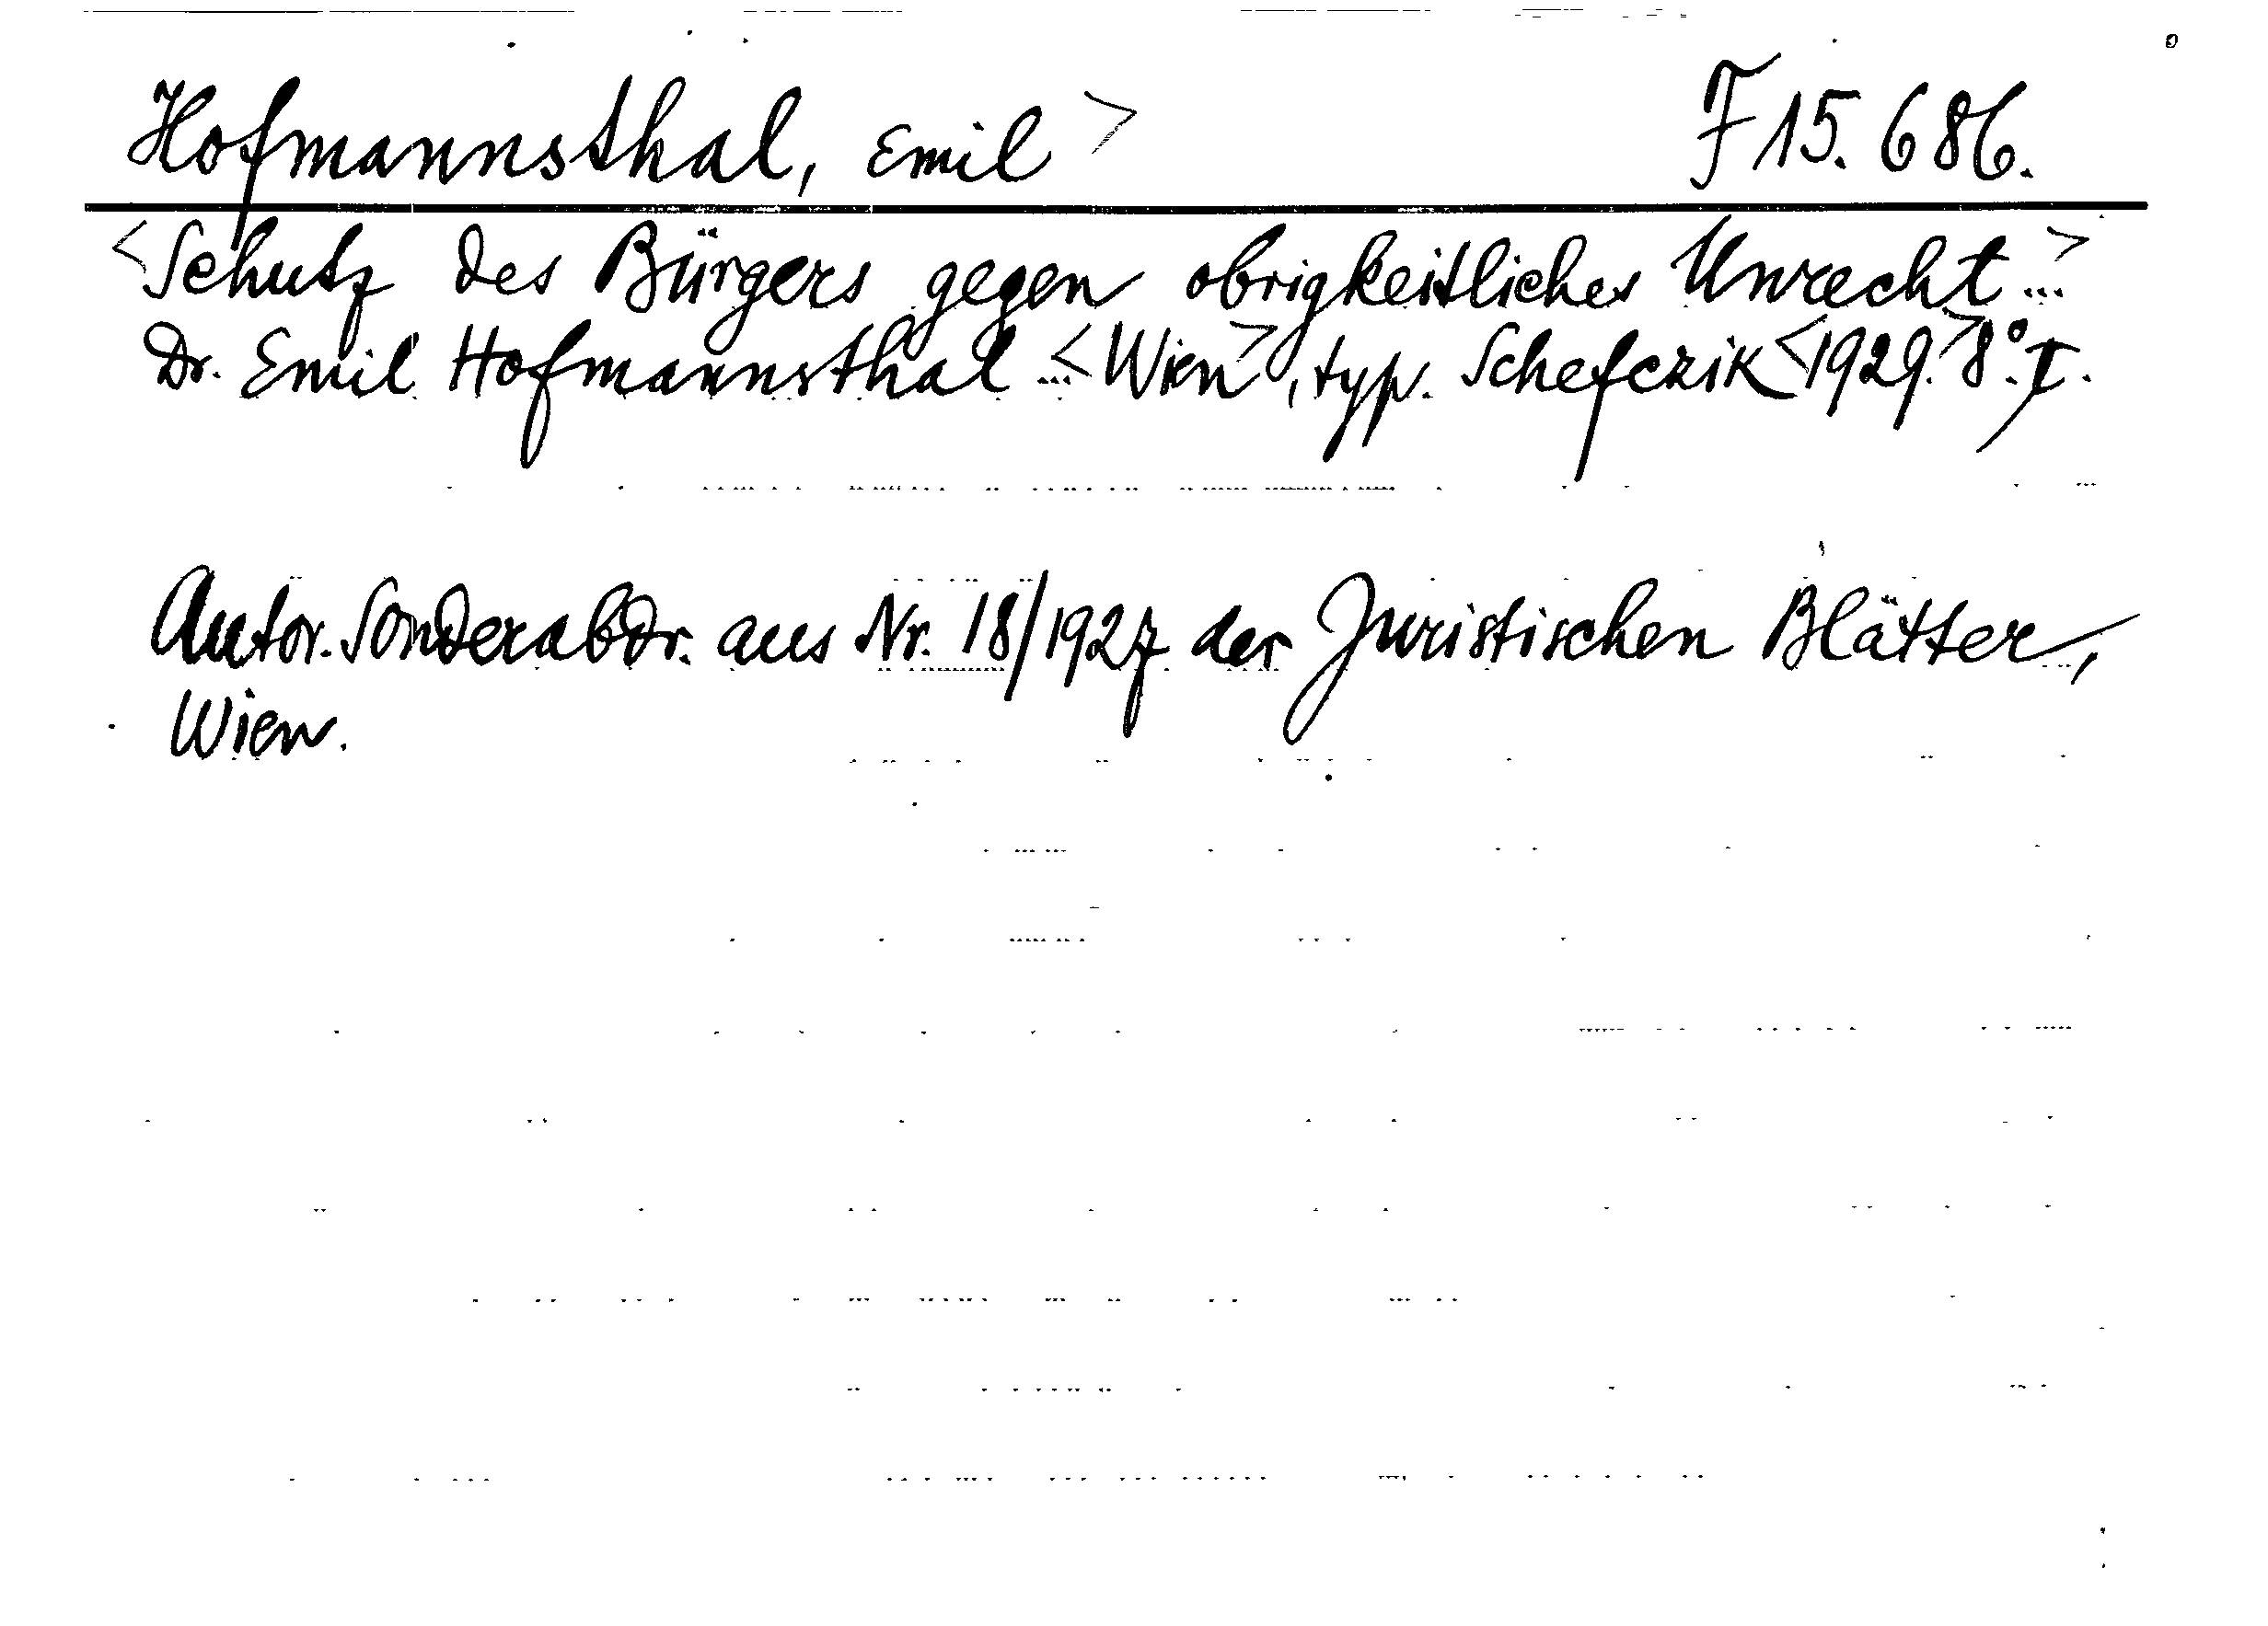 Hofmannsthal, Emil > F 15.686.
<Schutz des Bürgers gegen obrigkeitliches Unrecht ...>
Dr. Emil Hofmannsthal ... <Wien>, typ. Schefczik <1929.> 8°. I.
Autor. Sonderabdr. aus Nr. 18/1927 der Juristischen Blätter,
Wien.